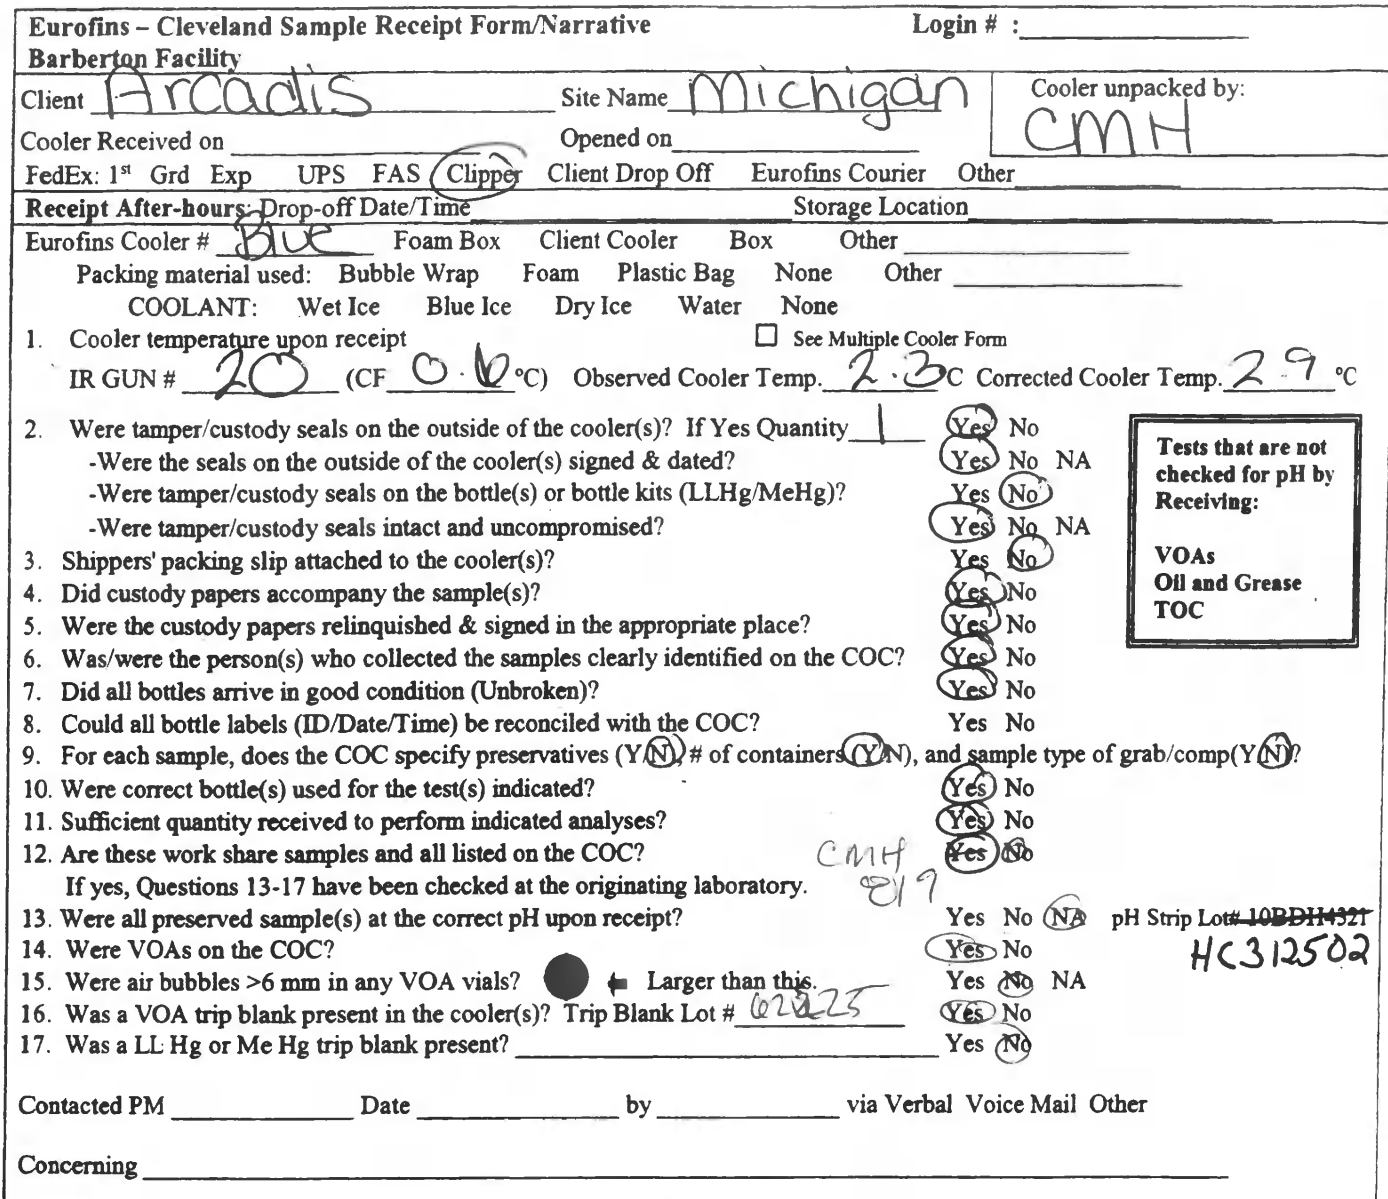 Eurofins – Cleveland Sample Receipt Form/Narrative Login # :
Barberton Facility
Client Arcadis Site Name Michigan Cooler unpacked by:
CMH
Cooler Received on Opened on
FedEx: 1st Grd Exp UPS FAS Clipper Client Drop Off Eurofins Courier Other
Receipt After-hours: Drop-off Date/Time Storage Location
Eurofins Cooler # Blue Foam Box Client Cooler Box Other
Packing material used: Bubble Wrap Foam Plastic Bag None Other
COOLANT: Wet Ice Blue Ice Dry Ice Water None
1. Cooler temperature upon receipt ☐ See Multiple Cooler Form
IR GUN # 20 (CF 0.6 °C) Observed Cooler Temp. 2.3 °C Corrected Cooler Temp. 2.9 °C
2. Were tamper/custody seals on the outside of the cooler(s)? If Yes Quantity 1 Yes No
-Were the seals on the outside of the cooler(s) signed & dated? Yes No NA
-Were tamper/custody seals on the bottle(s) or bottle kits (LLHg/MeHg)? Yes No
-Were tamper/custody seals intact and uncompromised? Yes No NA
3. Shippers' packing slip attached to the cooler(s)? Yes No
4. Did custody papers accompany the sample(s)? Yes No
5. Were the custody papers relinquished & signed in the appropriate place? Yes No
6. Was/were the person(s) who collected the samples clearly identified on the COC? Yes No
7. Did all bottles arrive in good condition (Unbroken)? Yes No
8. Could all bottle labels (ID/Date/Time) be reconciled with the COC? Yes No
Tests that are not
checked for pH by
Receiving:
VOAs
Oil and Grease
TOC
9. For each sample, does the COC specify preservatives (Y/N), # of containers (Y/N), and sample type of grab/comp(Y/N)?
10. Were correct bottle(s) used for the test(s) indicated? Yes No
11. Sufficient quantity received to perform indicated analyses? Yes No
12. Are these work share samples and all listed on the COC? CMH Yes No
If yes, Questions 13-17 have been checked at the originating laboratory.
13. Were all preserved sample(s) at the correct pH upon receipt? Yes No NA pH Strip Lot# 10BDH4321
HC312502
14. Were VOAs on the COC? Yes No
15. Were air bubbles >6 mm in any VOA vials? Larger than this. Yes No NA
16. Was a VOA trip blank present in the cooler(s)? Trip Blank Lot # Yes No
17. Was a LL Hg or Me Hg trip blank present? Yes No
Contacted PM Date by via Verbal Voice Mail Other
Concerning